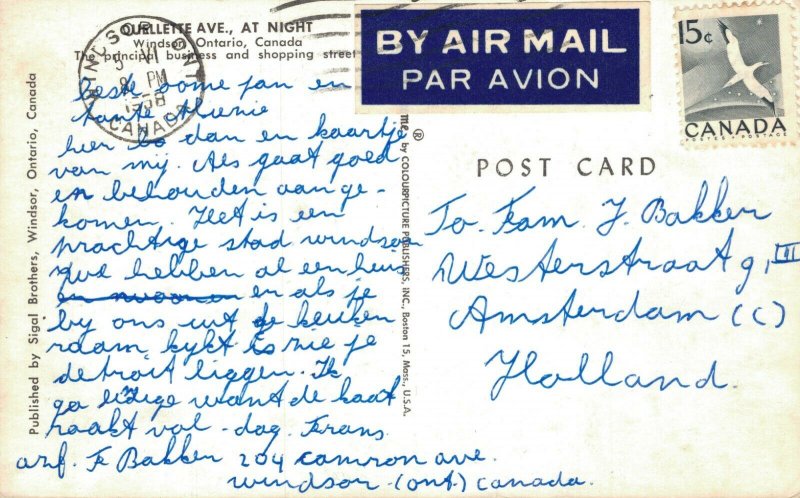 OUELLETTE AVE., AT NIGHT
Windsor, Ontario, Canada
The principal business and shopping street
WINDSOR ONT
5 VI
8 PM
1958
CANADA
BY AIR MAIL
PAR AVION
15¢
CANADA
POSTES - POSTAGE
Published by Sigal Brothers, Windsor, Ontario, Canada
by COLOURPICTURE PUBLISHERS, INC. Boston 15, Mass., U.S.A.
®
POST CARD
beste oome jan en
tante
hier zo dan en kaartje
van mij. Als gaat goed
en behouden aange-
komen. Het is een
prachtige stad windsor
hebben al een huis
en als je
by ons uit de keuken
raam kykt is nie je
detroit liggen. Ik
ga want de kaart
raakt vol - dag. Frans
To. Fam. J. Bakker
Westerstraat 9, III
Amsterdam (C)
Holland.
anf. F Bakker 204 camron ave.
windsor (ont) canada.